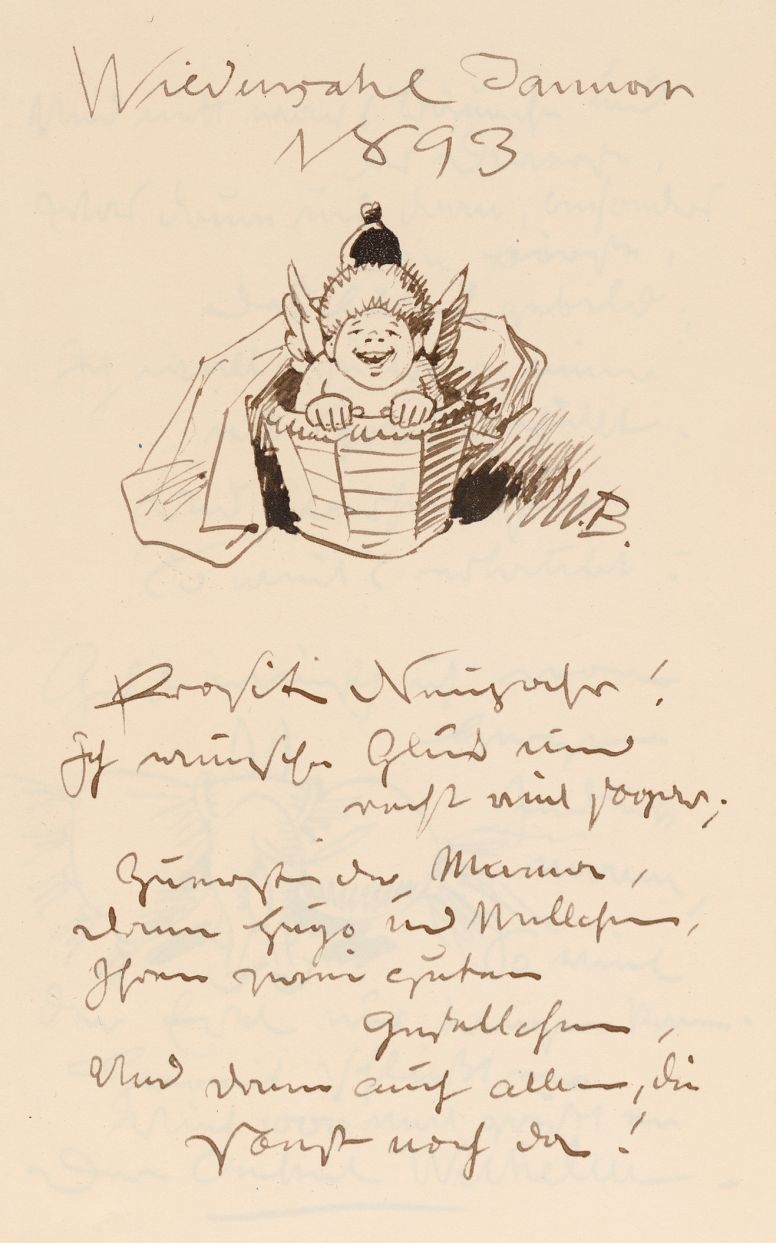 Wiedensahl Januar
1893
W.B.
Prosit Neujahr!
Ich wünsche Glück und
recht viel sogar;
Zuerst der Mama,
dann Hugo und Nellchen,
Ihren zwei guten
Gesellchen,
Und dann auch allen, die
sonst noch da!